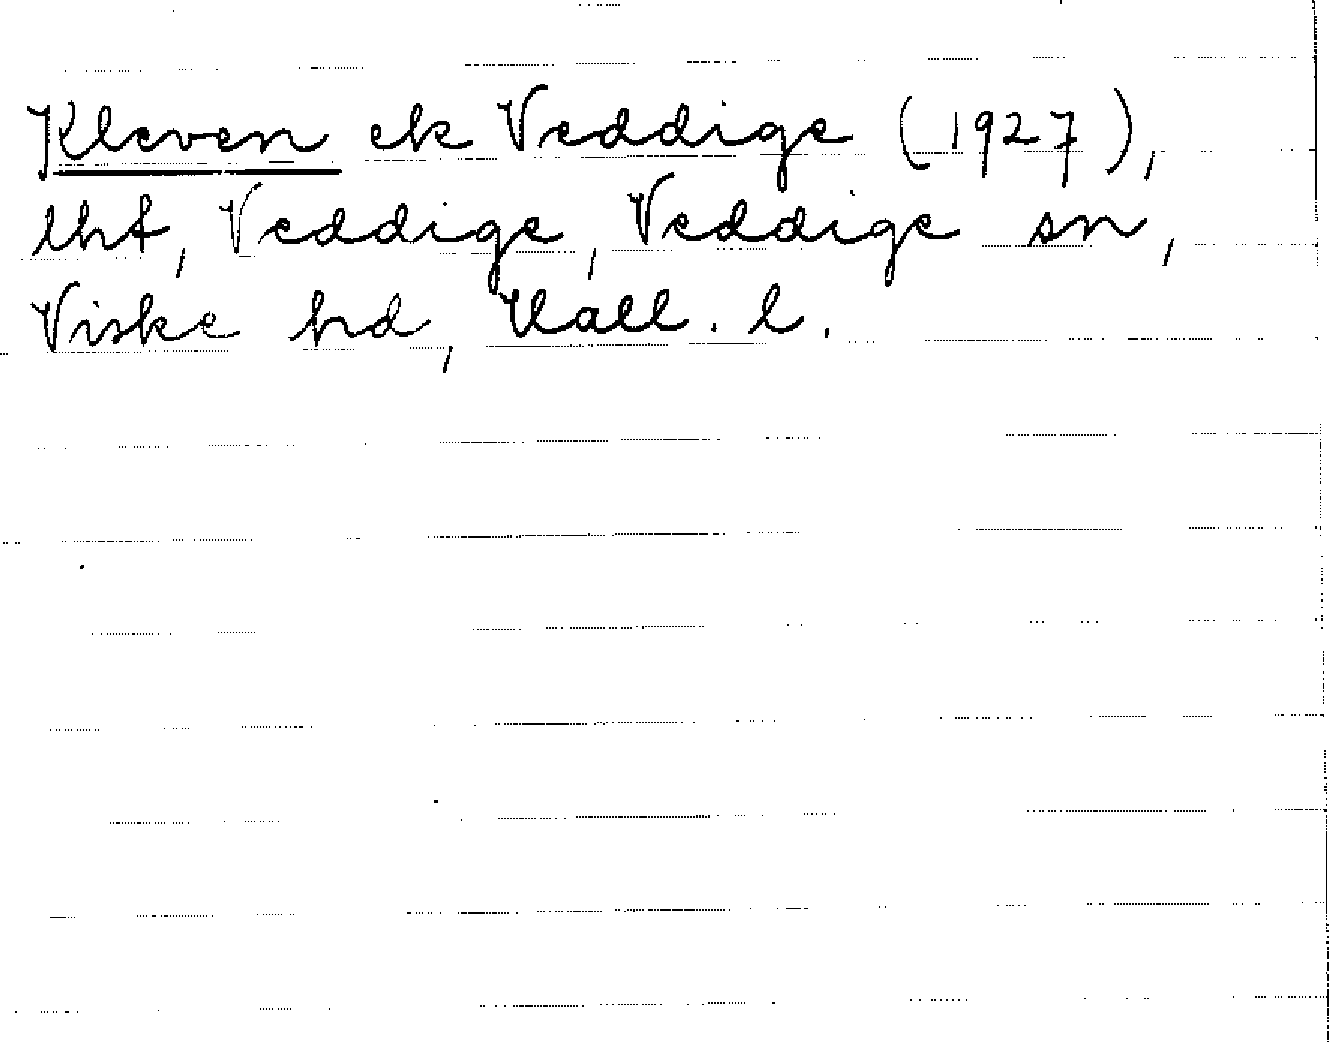 Kleven ek Veddige (1927),
lht, Veddige, Veddige sn,
Viske hd, Hall. l.